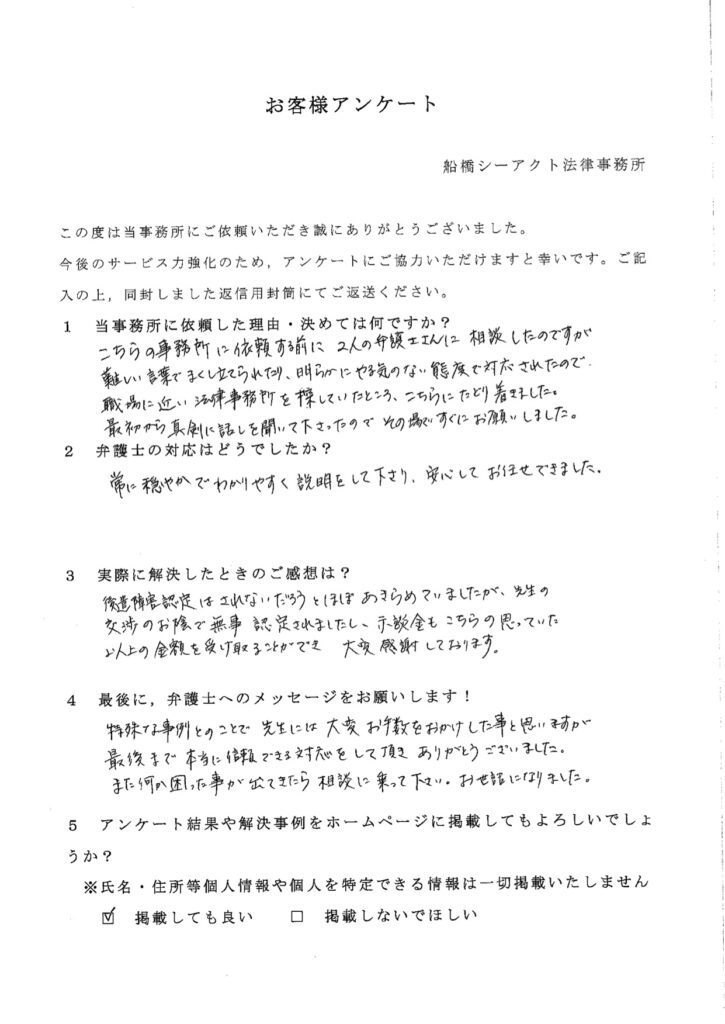 お客様アンケート
船橋シーアクト法律事務所
この度は当事務所にご依頼いただき誠にありがとうございました。
今後のサービス力強化のため，アンケートにご協力いただけますと幸いです。ご記
入の上，同封しました返信用封筒にてご返送ください。
1　当事務所に依頼した理由・決めては何ですか？
こちらの事務所に依頼する前に 2人の弁護士さんに 相談したのですが
難しい言葉でまくし立てられたり、明らかにやる気のない態度で対応されたので
職場に近い法律事務所を探していたところ、こちらにたどり着きました。
最初から真剣に話しを聞いて下さったので その場ですぐにお願いしました。
2　弁護士の対応はどうでしたか？
常に穏やかでわかりやすく説明をして下さり、安心してお任せできました。
3　実際に解決したときのご感想は？
後遺障害認定はされないだろうとほぼあきらめていましたが、先生の
交渉のお陰で無事 認定されましたし、示談金もこちらの思っていた
以上の金額を受け取ることができ 大変感謝しております。
4　最後に，弁護士へのメッセージをお願いします！
特殊な事例とのことで 先生には 大変お手数をおかけした事と思いますが
最後まで本当に信頼できる対応をして頂き ありがとうございました。
また何か困った事が出てきたら相談に乗って下さい。お世話になりました。
5　アンケート結果や解決事例をホームページに掲載してもよろしいでしょ
うか？
※氏名・住所等個人情報や個人を特定できる情報は一切掲載いたしません
☑　掲載しても良い　□　掲載しないでほしい